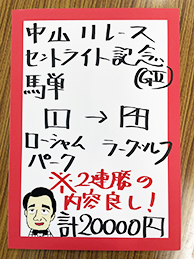 中山11レース
セントライト記念
(GⅡ)
馬単
1 → 田
ローシャム ラーグルフ
パーク
※2連勝の
内容良し!
計20000円